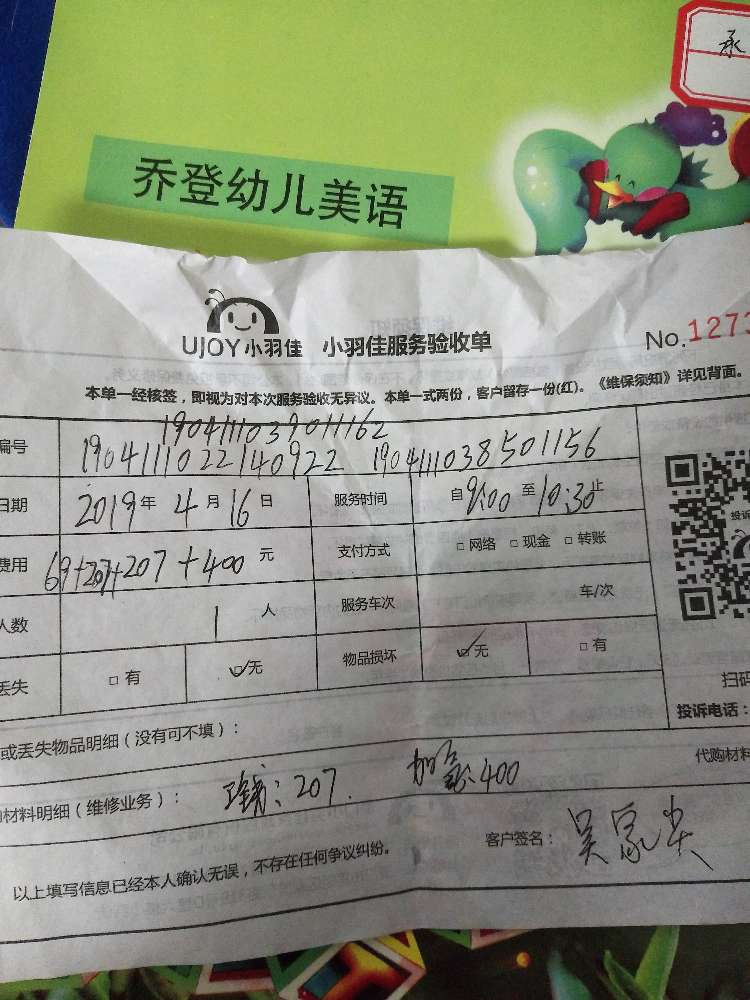 承
乔登幼儿美语
UJOY小羽佳 小羽佳服务验收单 No.1273
本单一经核签，即视为对本次服务验收无异议。本单一式两份，客户留存一份(红)。《维保须知》详见背面。
编号 1904111039011162
1904111022140922 1904111038501156
日期 2019年4月16日 服务时间 自9:00至10:30止
费用 69+207+207+400元 支付方式 □网络 □现金 □转账
人数 1人 服务车次 车/次
丢失 □有 ☑无 物品损坏 ☑无 □有
投诉
扫码
投诉电话：
或丢失物品明细（没有可不填）：
代购材料
材料明细（维修业务）： :207. 加氟:400
客户签名：吴
以上填写信息已经本人确认无误，不存在任何争议纠纷。